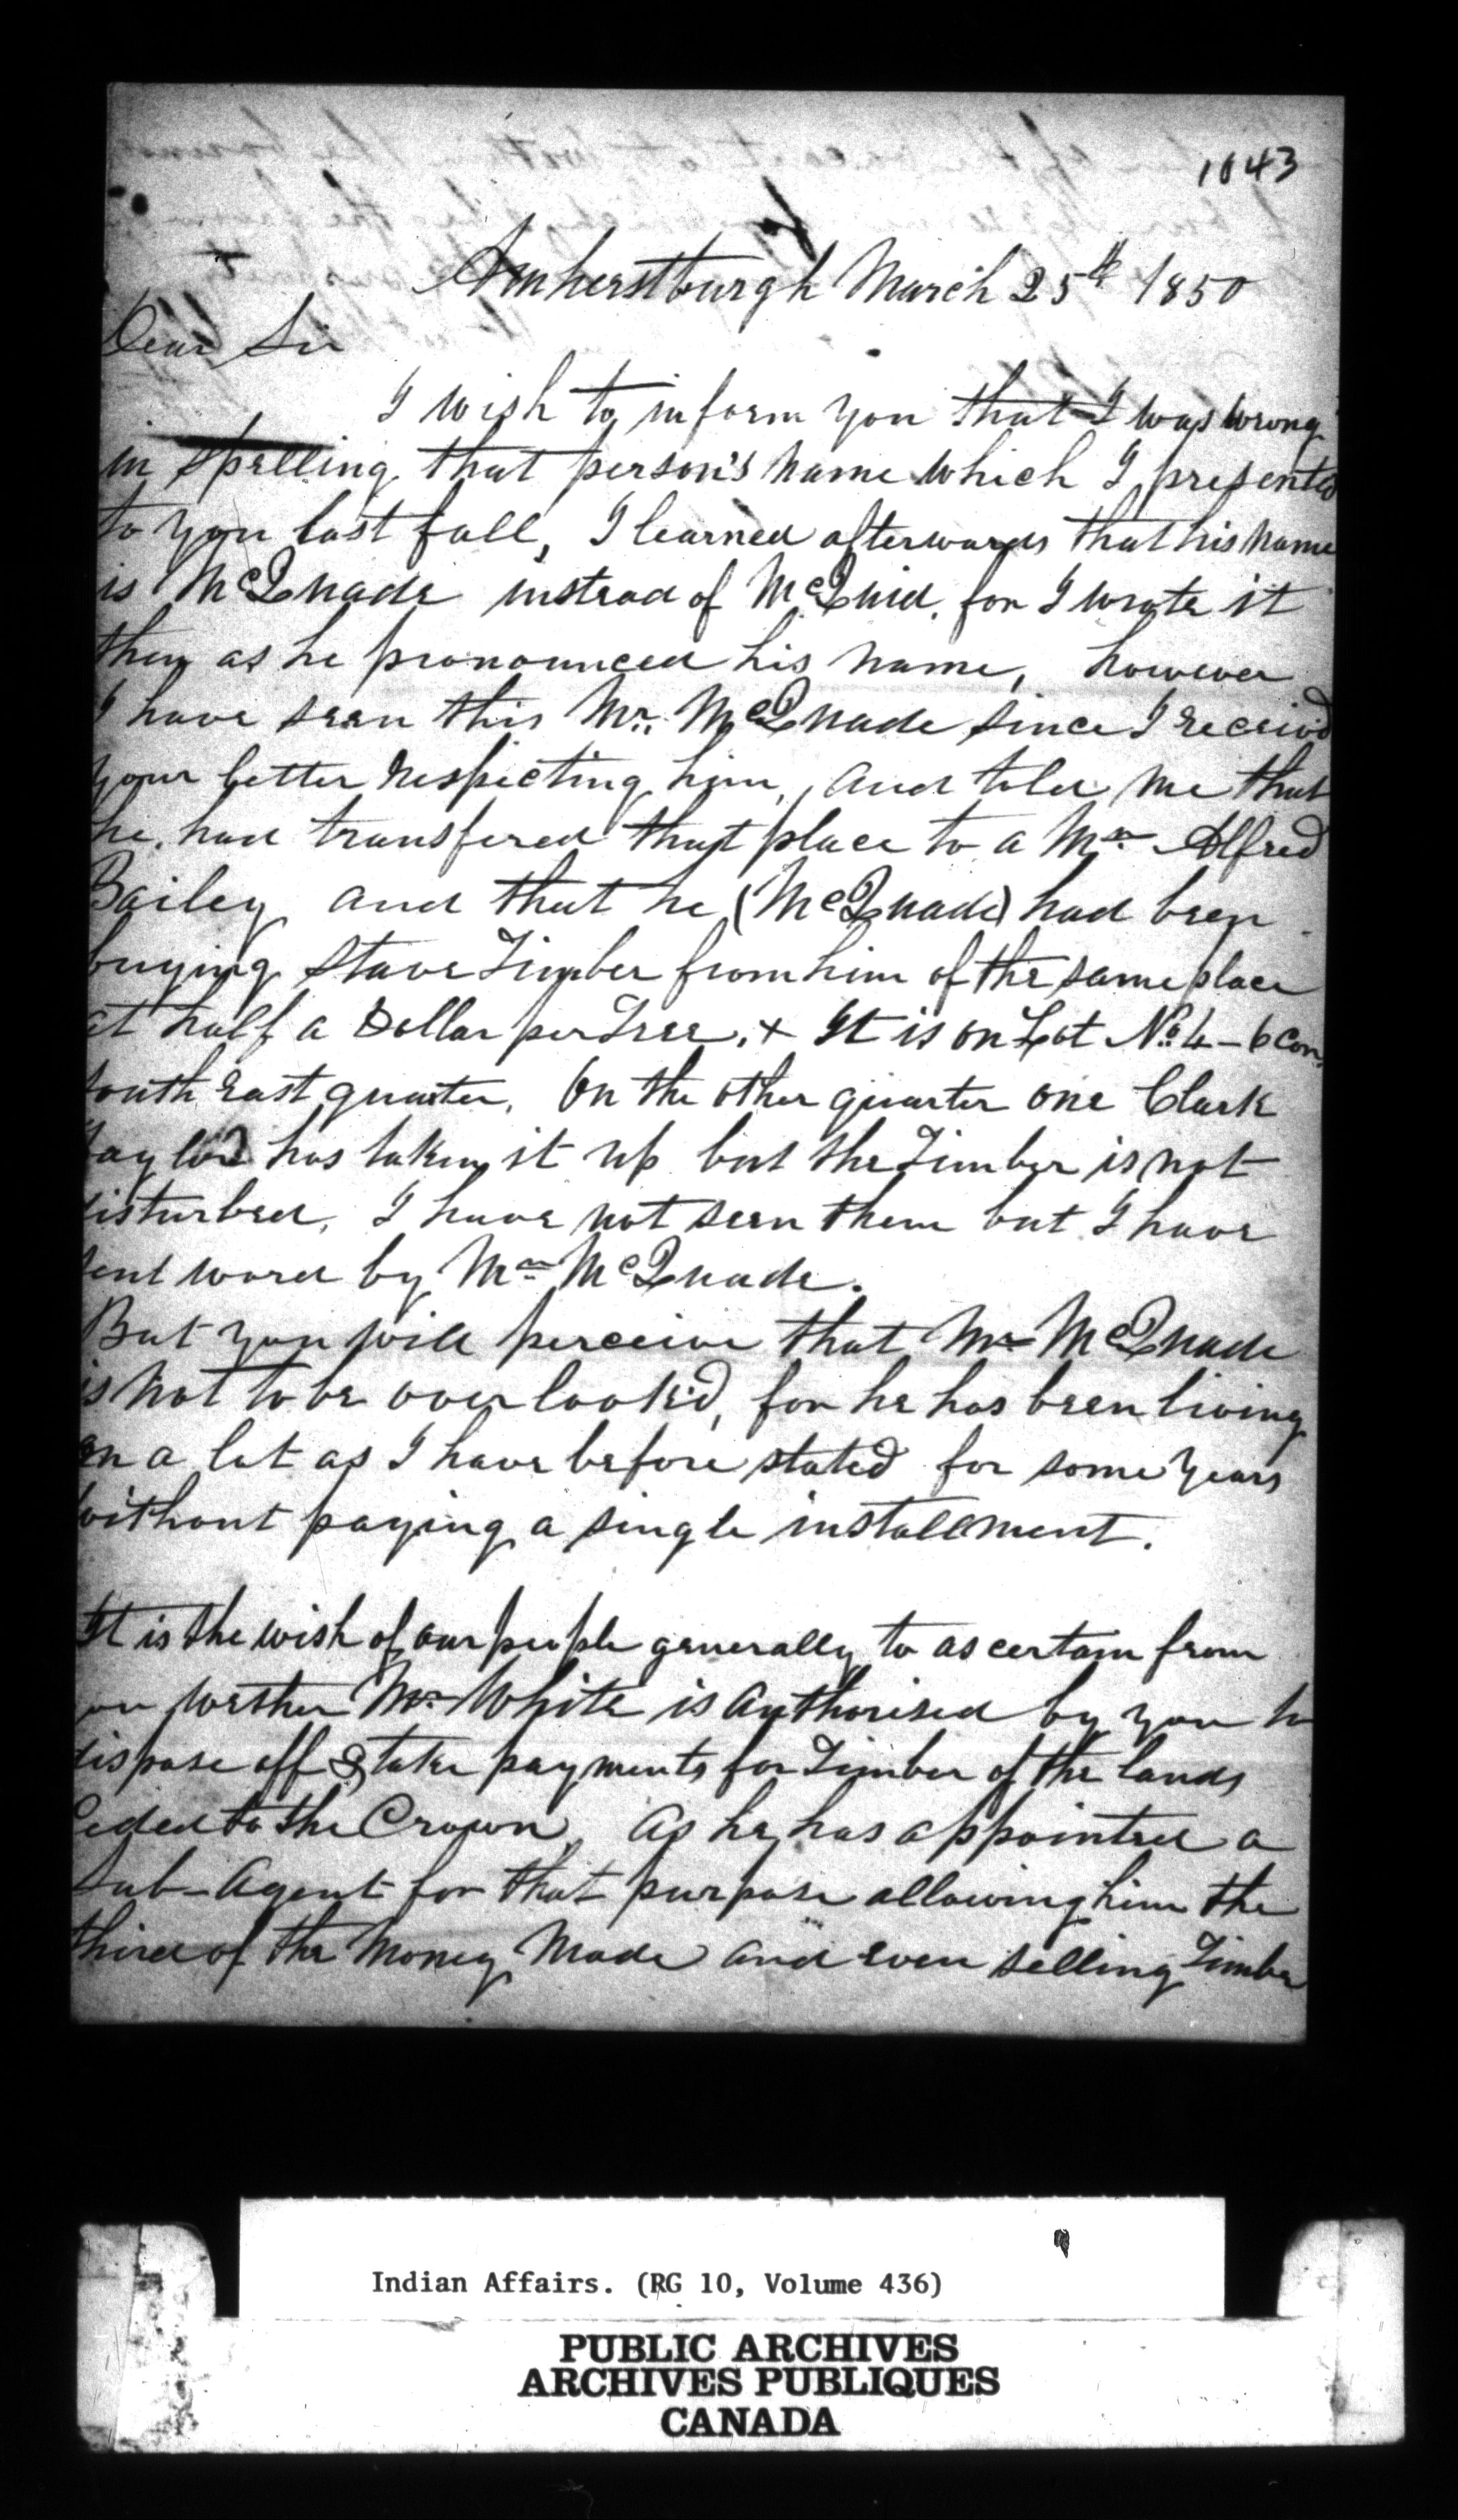 1043
Amherstburgh March 25th 1850
Dear Sir
I wish to inform you that I was wrong
in spelling that person's name which I presented
to you last fall, I learned afterwards that his name
is McQuade instead of McQuid. for I wrote it
then as he pronounced his name, however
I have seen this Mr. McQuade since I receiv'd
your letter respecting him, and told me that
he had transfered that place to a Mr. Alfred
Bailey and that he (McQuade) had been
buying stave Timber from him of the same place
at half a Dollar per Tree. + It is on Lot No. 4 - 6 Con.
South East quarter. On the other quarter one Clark
Taylor has taken it up but the Timber is not
disturbed, I have not seen them but I have
sent word by Mr. McQuade.
But you will perceive that Mr McQuade
is not to be overlook'd, for he has been living
on a lot as I have before stated for some years
without paying a single installment.
It is the wish of our people generally to ascertain from
you wether Mr. White is authorised by you to
dispose off & take payments for Timber of the lands
Ceded to the Crown, As he has appointed a
Sub-Agent for that purpose allowing him the
third of the money made and even selling Timber
Indian Affairs. (RG 10, Volume 436)
PUBLIC ARCHIVES
ARCHIVES PUBLIQUES
CANADA